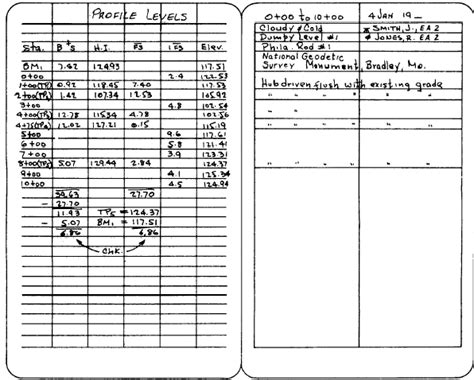 PROFILE LEVELS
Sta. B⁺s H.I. F̄s IFs Elev.
BM₁ 7.42 124.93 117.51
0+00 2.4 122.53
1+00(TP₁) 0.92 118.45 7.40 117.53
2+00(TP₂) 1.42 107.34 12.53 105.92
3+00 4.8 102.54
4+00(TP₃) 12.78 115.34 4.78 102.56
4+75(TP₄) 12.02 127.21 0.15 115.19
5+00 9.6 117.61
6+00 5.8 121.41
7+00 3.9 123.31
8+00(TP₅) 5.07 129.44 2.84 124.37
9+00 4.1 125.34
10+00 4.5 124.94
39.63 27.70
- 27.70
11.93 TP₅ = 124.37
- 5.07 BM₁ = 117.51
6.86 6.86
CHK.
0+00 to 10+00 4 JAN 19__
Cloudy & Cold ⊼ SMITH, J., EA2
Dumpy Level #1 φ JONES, R. EA2
Phila. Rod #1
National Geodetic
Survey Monument, Bradley, Mo.
Hub driven flush with existing grade
" " " " "
" "
" " " " "
" " " " "
" " " " "